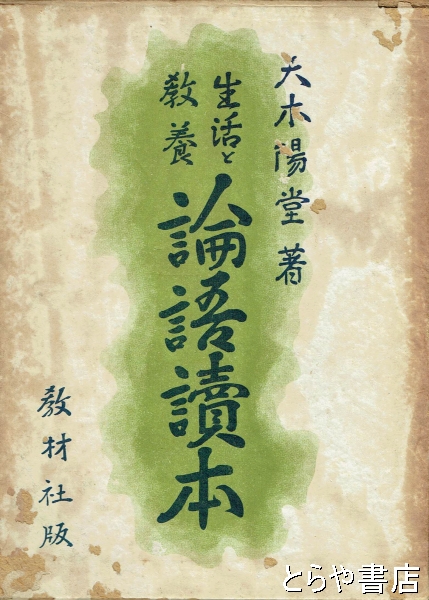 大木陽堂 著
生活と
教養
論語讀本
教材社版
とらや書店